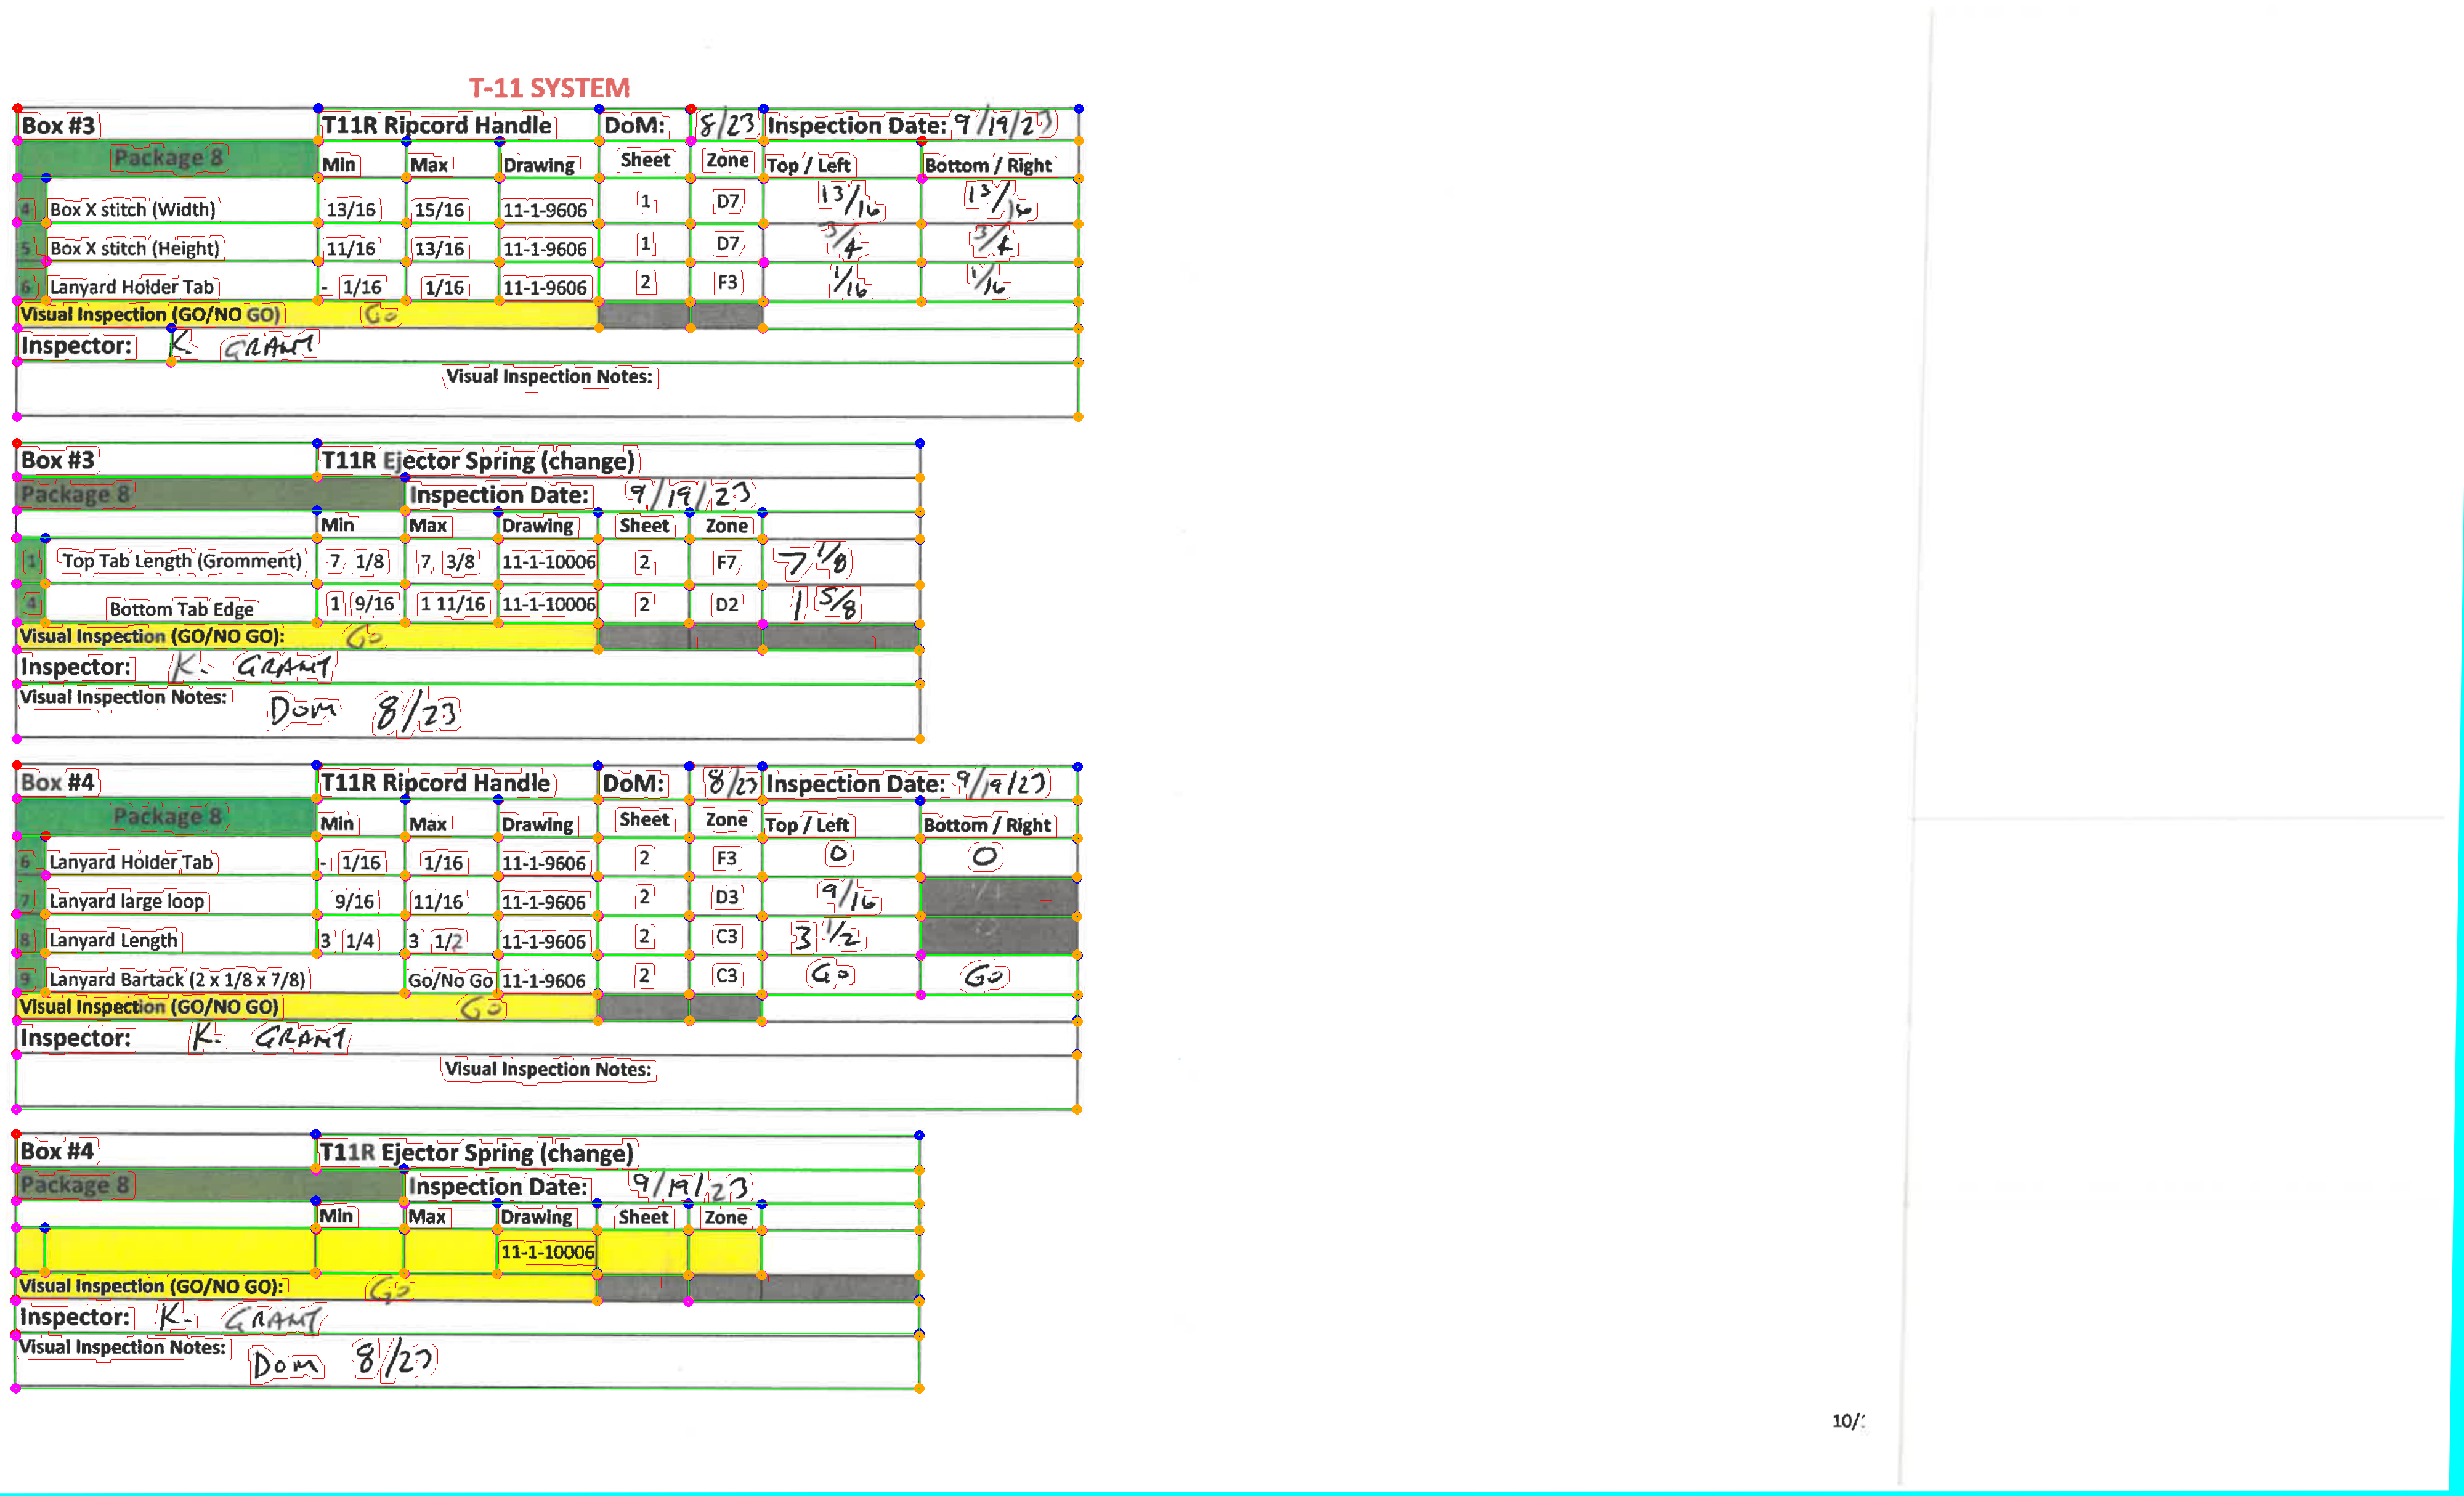 T-11 SYSTEM
Box #3 T11R Ripcord Handle DoM: 8/23 Inspection Date: 9/19/23
Package 8 Min Max Drawing Sheet Zone Top / Left Bottom / Right
4 Box X stitch (Width) 13/16 15/16 11-1-9606 1 D7 13/16 13/16
5 Box X stitch (Height) 11/16 13/16 11-1-9606 1 D7 3/4 3/4
6 Lanyard Holder Tab - 1/16 1/16 11-1-9606 2 F3 1/16 1/16
Visual Inspection (GO/NO GO) Go
Inspector: K. GRANT
Visual Inspection Notes:
Box #3 T11R Ejector Spring (change)
Package 8 Inspection Date: 9/19/23
Min Max Drawing Sheet Zone
1 Top Tab Length (Gromment) 7 1/8 7 3/8 11-1-10006 2 F7 7 1/8
4 Bottom Tab Edge 1 9/16 1 11/16 11-1-10006 2 D2 1 5/8
Visual Inspection (GO/NO GO): Go
Inspector: K. GRANT
Visual Inspection Notes: DOM 8/23
Box #4 T11R Ripcord Handle DoM: 8/23 Inspection Date: 9/19/23
Package 8 Min Max Drawing Sheet Zone Top / Left Bottom / Right
6 Lanyard Holder Tab - 1/16 1/16 11-1-9606 2 F3 0 0
7 Lanyard large loop 9/16 11/16 11-1-9606 2 D3 9/16
8 Lanyard Length 3 1/4 3 1/2 11-1-9606 2 C3 3 1/2
9 Lanyard Bartack (2 x 1/8 x 7/8) Go/No Go 11-1-9606 2 C3 Go Go
Visual Inspection (GO/NO GO) Go
Inspector: K. GRANT
Visual Inspection Notes:
Box #4 T11R Ejector Spring (change)
Package 8 Inspection Date: 9/19/23
Min Max Drawing Sheet Zone
11-1-10006
Visual Inspection (GO/NO GO): Go
Inspector: K. GRANT
Visual Inspection Notes: DOM 8/23
10/